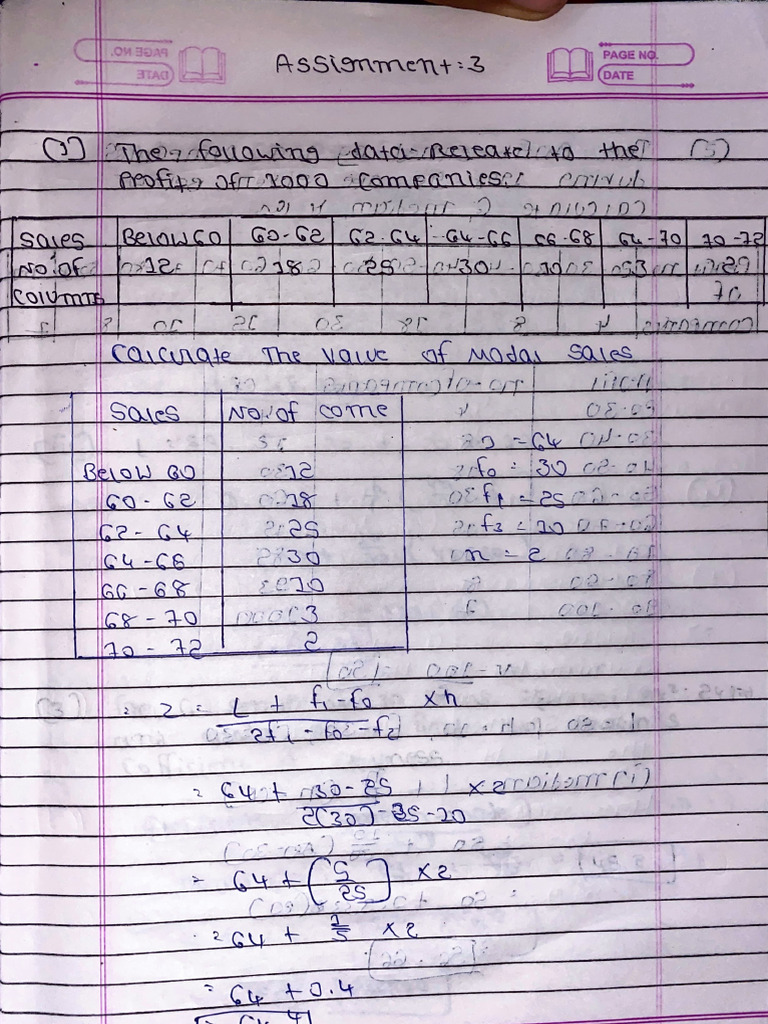 PAGE NO.
DATE
Assignment : 3
PAGE NO.
DATE
(1) The following data Releate to the
Profits of 1000 companies.
Sales Below 60 60-62 62-64 64-66 66-68 64-70 70-72
No. of 12 18 25 30 10 3 2
columns
Calculate The value of Modal Sales
Sales No. of come
Below 60 12
60 - 62 18
62 - 64 25
64 - 66 30
66 - 68 10
68 - 70 3
70 - 72 2
= 64
f0 = 30
f1 = 25
f2 = 10
n = 2
= Z = L + f1 - f0 × h
2f1 - f0 - f2
= 64 + 30 - 25 × 2
2(30) - 25 - 10
= 64 + (5 × 2
25)
= 64 + 1 × 2
5
= 64 + 0.4
= 64.4